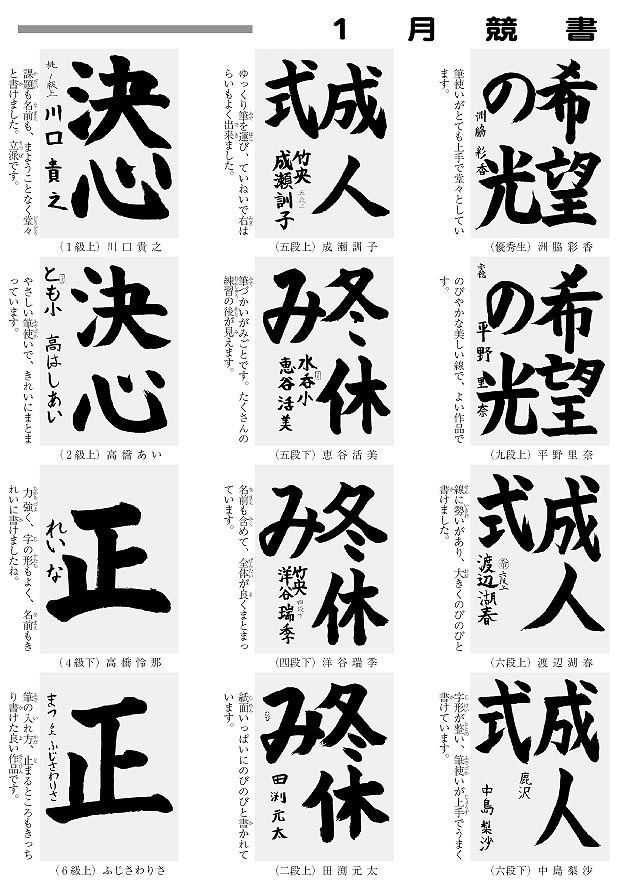 1月競書
希望
の光
洲脇 彩香
筆使いがとても上手で堂々としてい
ます。
(優秀生) 洲脇彩香
成人
式
竹央
五段上
成瀬訓子
ゆっくり筆を運び、ていねいで右は
らいもよく出来ました。
(五段上) 成瀬訓子
決心
川口貴之
課題も名前も、まようことなく堂々
と書けました。立派です。
(1級上) 川口貴之
希望
の光
平野 里奈
のびやかな美しい線で、よい作品で
す。
(九段上) 平野里奈
冬休
み
水呑小
恵谷活美
筆づかいがみごとです。たくさんの
練習の後が見えます。
(五段下) 恵谷活美
決心
とも小
高はしあい
やさしい筆使いで、きれいにまとま
っています。
(2級上) 高橋あい
成人
式
六段上
渡辺湖春
線に勢いがあり、大きくのびのびと
書けました。
(六段上) 渡辺湖春
冬休
み
竹央
四段下
洋谷瑞季
名前も含めて、全体が良くまとまっ
ています。
(四段下) 洋谷瑞季
正
れいな
力強く、字の形もよく、名前もき
れいに書けましたね。
(4級下) 高橋怜那
成人
式
鹿沢
中島梨沙
字形が整い、筆使いが上手でうまく
書けています。
(六段下) 中島梨沙
冬休
み
田渕元太
紙面いっぱいにのびのびと書かれて
います。
(二段上) 田渕元太
正
ふじさわりさ
筆の入れ方、止まるところもきっち
り書けた良い作品です。
(6級上) ふじさわりさ